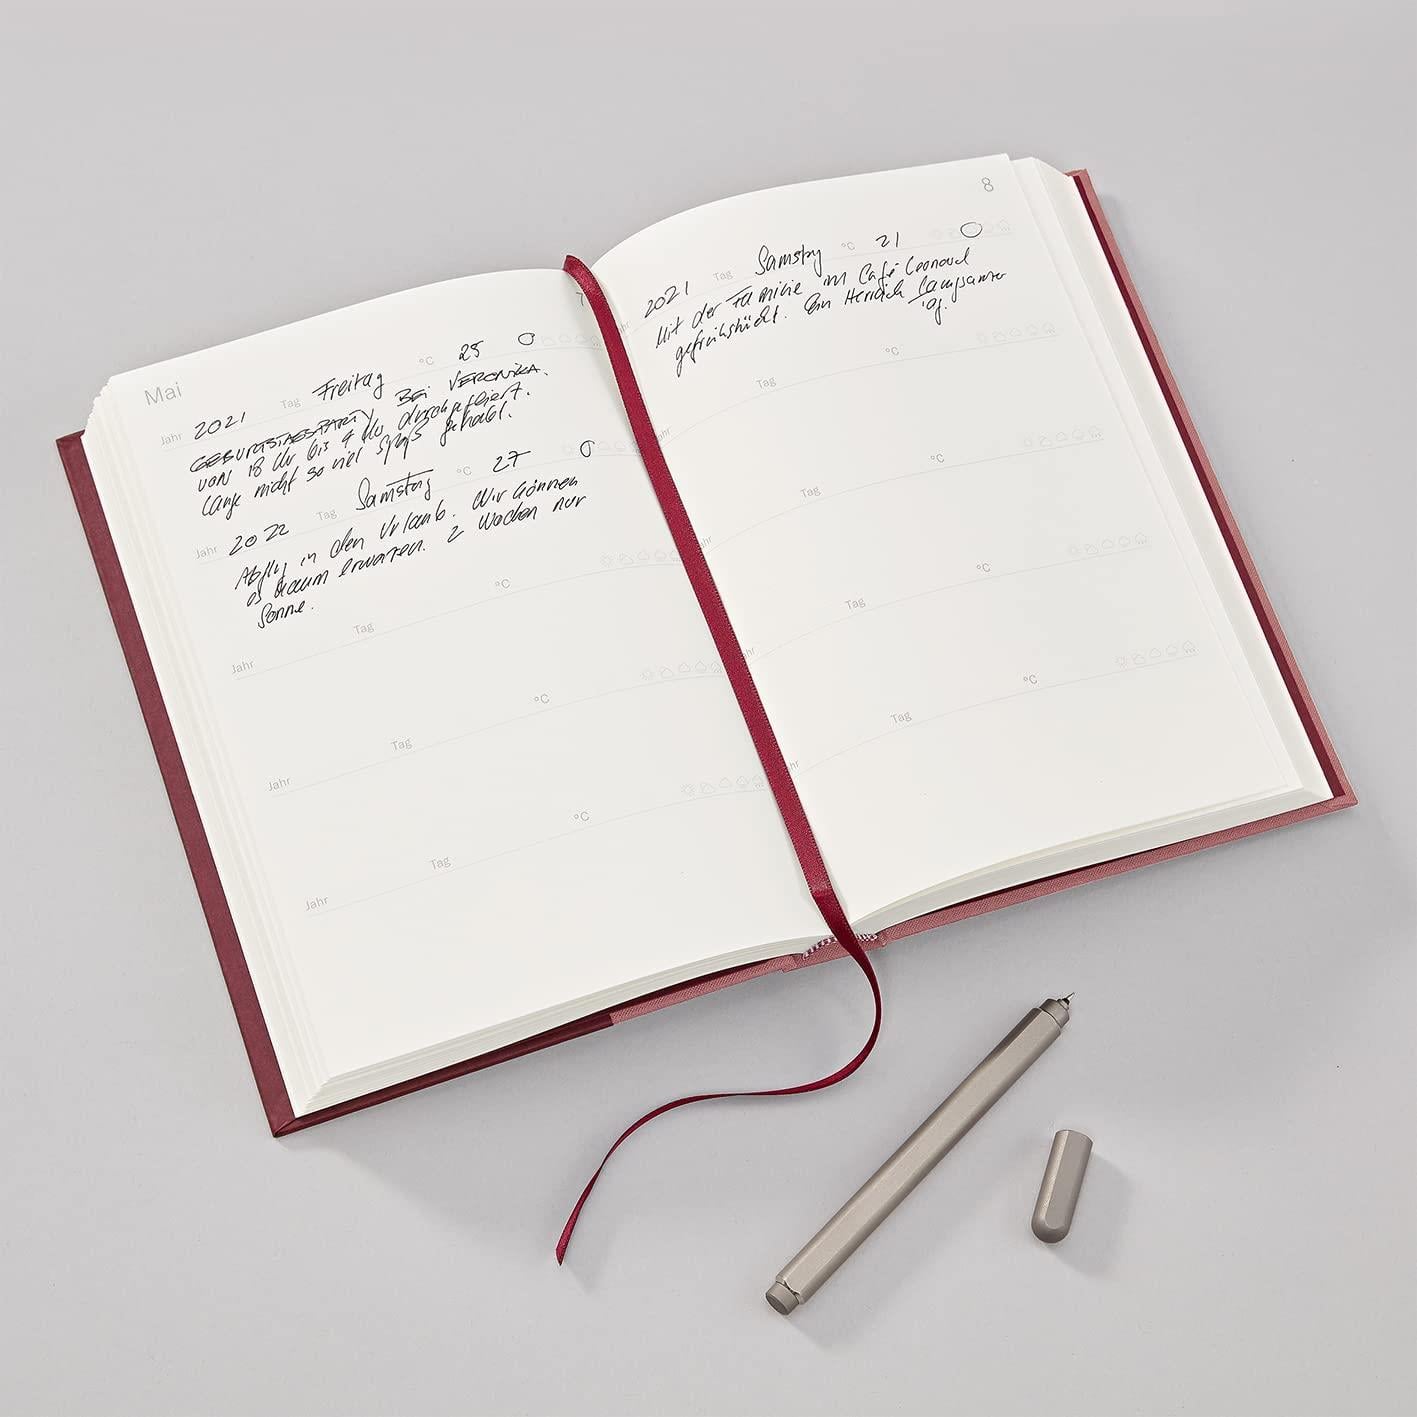 Mai
7
Jahr 2021 Tag Freitag °C 25
GEBURTSTAGSPARTY BEI VERONIKA.
VON 18 Uhr bis 4 Uhr durchgefeiert.
Lange nicht so viel Spaß gehabt.
Jahr 2022 Tag Samstag °C 27
Abflug in den Urlaub. Wir können
es kaum erwarten. 2 Wochen nur
Sonne.
Jahr Tag °C
Jahr Tag °C
Jahr Tag °C
8
2021 Tag Samstag °C 21
Mit der Familie im Café Leonard
gefrühstückt. Ein Herrlich langsamer
Tag.
Tag °C
Tag °C
Tag °C
Tag °C